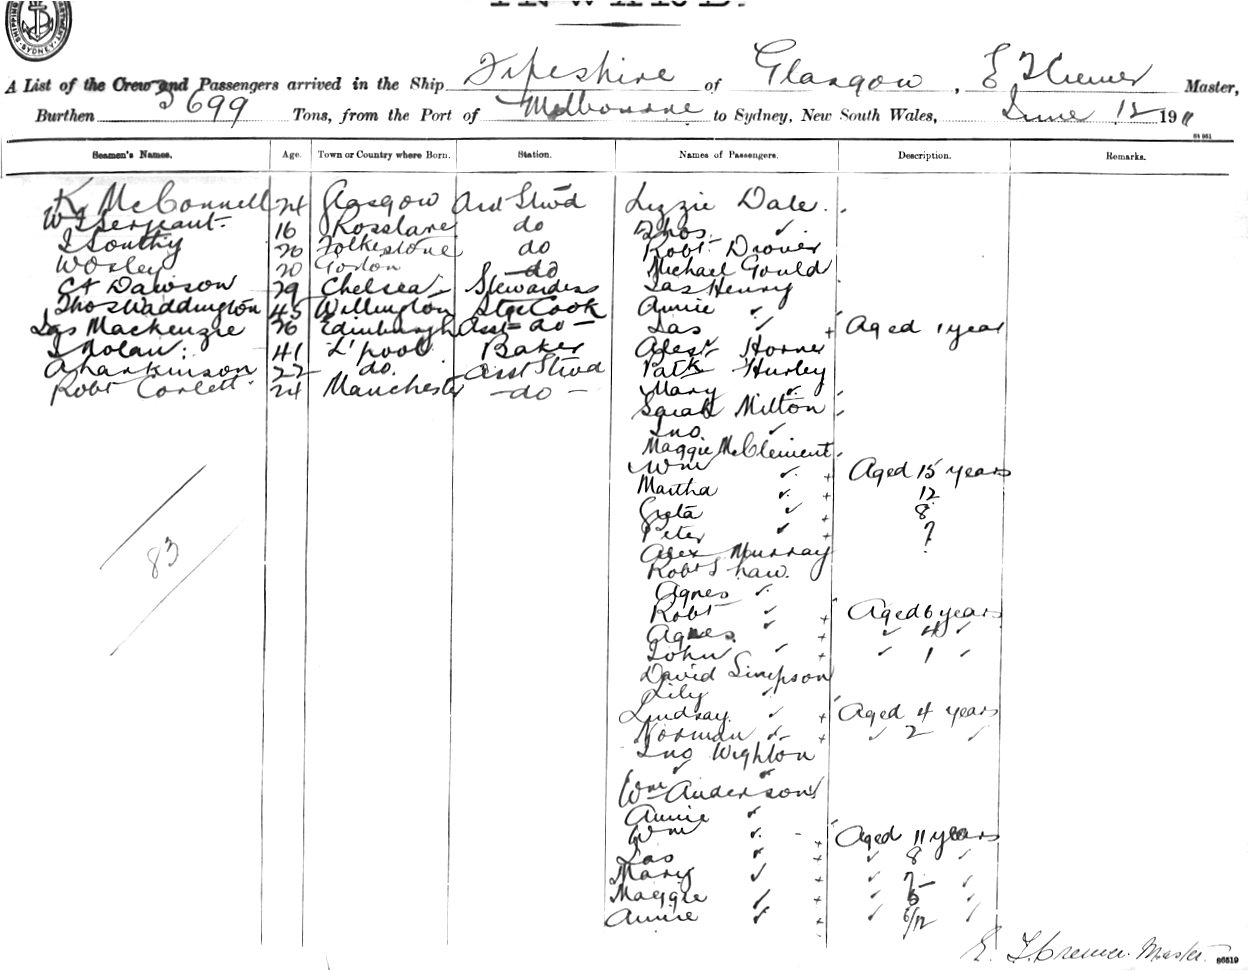 INWARD.
SHIPPING
SYDNEY
A List of the Crew and Passengers arrived in the Ship Fifeshire of Glasgow, E F Cremer Master,
Burthen 3699 Tons, from the Port of Melbourne to Sydney, New South Wales, June 12 1911
Seamen's Names. Age. Town or Country where Born. Station. Names of Passengers. Description. Remarks.
K McConnell 24 Glasgow Asst Stwd Lizzie Dale
W J Serjeant 16 Rosslare do Thos ✓
J Southy 20 Folkestone do Robt Drover
Worley 20 do Michael Gould
Dawson 29 Chelsea Stewardess Jas Henry
Thos Waddington 45 Willington Stge Cook Annie ✓
Jas Mackenzie 26 Edinburgh Asst - do - Jas ✓ + Aged 1 year
J Nolan 41 L'pool Baker Alexr Horner
A Harkinson 22 do. Asst Stwd Patk Hurley
Robt Corlett 24 Manchester - do - Mary ✓
Sarah Milton
Jno ✓
Maggie McClement
Wm ✓ + Aged 15 years
Martha ✓ + 12
Greta ✓ + 8
Peter ✓ + 7
Alex Murray
Robt Shaw.
Agnes ✓
Robt ✓ + Aged 6 years
Agnes ✓ + ✓ 4 ✓
John ✓ + ✓ 1 ✓
David Simpson
Lily ✓
Lindsay ✓ + Aged 4 years
Norman ✓ + ✓ 2 ✓
Jno Wighton
✓ ✓
Wm Anderson
Annie ✓
Wm ✓ + Aged 11 years
Jas ✓ + ✓ 8 ✓
Mary ✓ + ✓ 7 ✓
Maggie ✓ + ✓ 5 ✓
Annie ✓ + ✓ 6/12 ✓
83
E. F. Cremer. Master.
86519